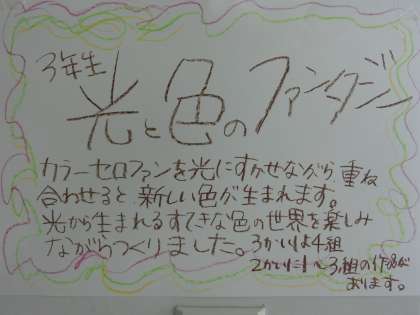 3年生
光と色のファンタジー
カラーセロファンを光にすかせながら、重ね
合わせると、新しい色が生まれます。
光から生まれるすてきな色の世界を楽しみ
ながらつくりました。3かいは4組
2かいに1～3組の作品が
あります。